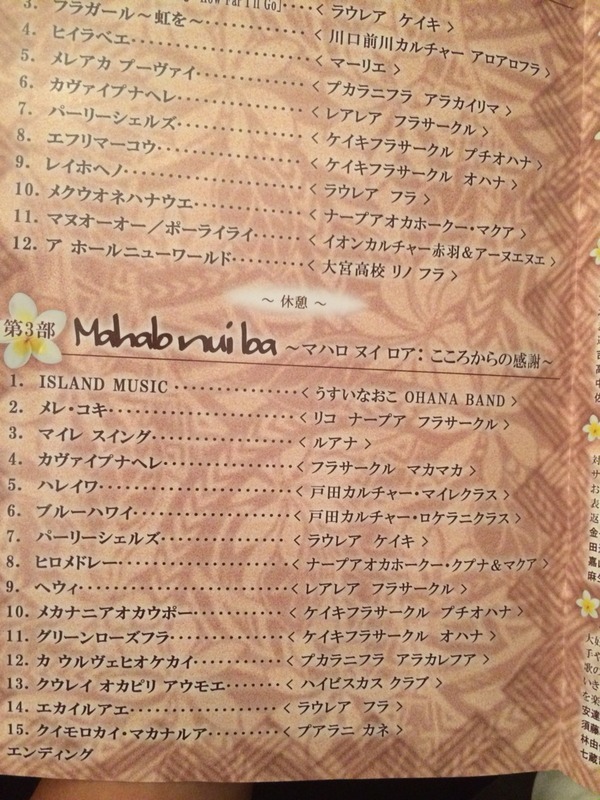 3. フラガール～虹を～ 「How Far I'll Go」‥‥〈 ラウレア ケイキ 〉
4. ヒイラベエ‥‥‥‥‥‥〈 川口前川カルチャー アロアロフラ 〉
5. メレアカ プーヴァイ‥‥‥‥‥‥〈 マーリエ 〉
6. カヴァイプナヘレ‥‥‥‥‥‥〈 プカラニフラ アラカイリマ 〉
7. パーリーシェルズ‥‥‥‥‥‥〈 レアレア フラサークル 〉
8. エフリマーコウ‥‥‥‥‥‥〈 ケイキフラサークル プチオハナ 〉
9. レイホヘノ‥‥‥‥‥‥〈 ケイキフラサークル オハナ 〉
10. メクウオネハナウエ‥‥‥‥‥‥〈 ラウレア フラ 〉
11. マヌオーオー／ポーライライ‥‥‥‥〈 ナープアオカホークー・マクア 〉
12. ア ホールニューワールド‥‥‥‥〈 イオンカルチャー赤羽＆アーヌエヌエ 〉
〈 大宮高校 リノ フラ 〉
～ 休憩 ～
第3部 Mahalo nui loa ～マハロ ヌイ ロア：こころからの感謝～
1. ISLAND MUSIC ‥‥‥‥‥‥〈 うすいなおこ OHANA BAND 〉
2. メレ・コキ‥‥‥‥‥‥〈 リコ ナープア フラサークル 〉
3. マイレ スイング‥‥‥‥‥‥〈 ルアナ 〉
4. カヴァイプナヘレ‥‥‥‥‥‥〈 フラサークル マカマカ 〉
5. ハレイワ‥‥‥‥‥‥〈 戸田カルチャー・マイレクラス 〉
6. ブルーハワイ‥‥‥‥‥‥〈 戸田カルチャー・ロケラニクラス 〉
7. パーリーシェルズ‥‥‥‥‥‥〈 ラウレア ケイキ 〉
8. ヒロメドレー‥‥‥‥‥‥〈 ナープアオカホークー・クプナ＆マクア 〉
9. ヘウィ‥‥‥‥‥‥〈 レアレア フラサークル 〉
10. メカナニアオカウポー‥‥‥‥‥‥〈 ケイキフラサークル プチオハナ 〉
11. グリーンローズフラ‥‥‥‥‥‥〈 ケイキフラサークル オハナ 〉
12. カ ウルヴェヒオケカイ‥‥‥‥‥‥〈 プカラニフラ アラカレフア 〉
13. クウレイ オカピリ アウモエ‥‥‥‥〈 ハイビスカス クラブ 〉
14. エカイルアエ‥‥‥‥‥‥〈 ラウレア フラ 〉
15. クイモロカイ・マカナルア‥‥‥‥〈 プアラニ カネ 〉
エンディング